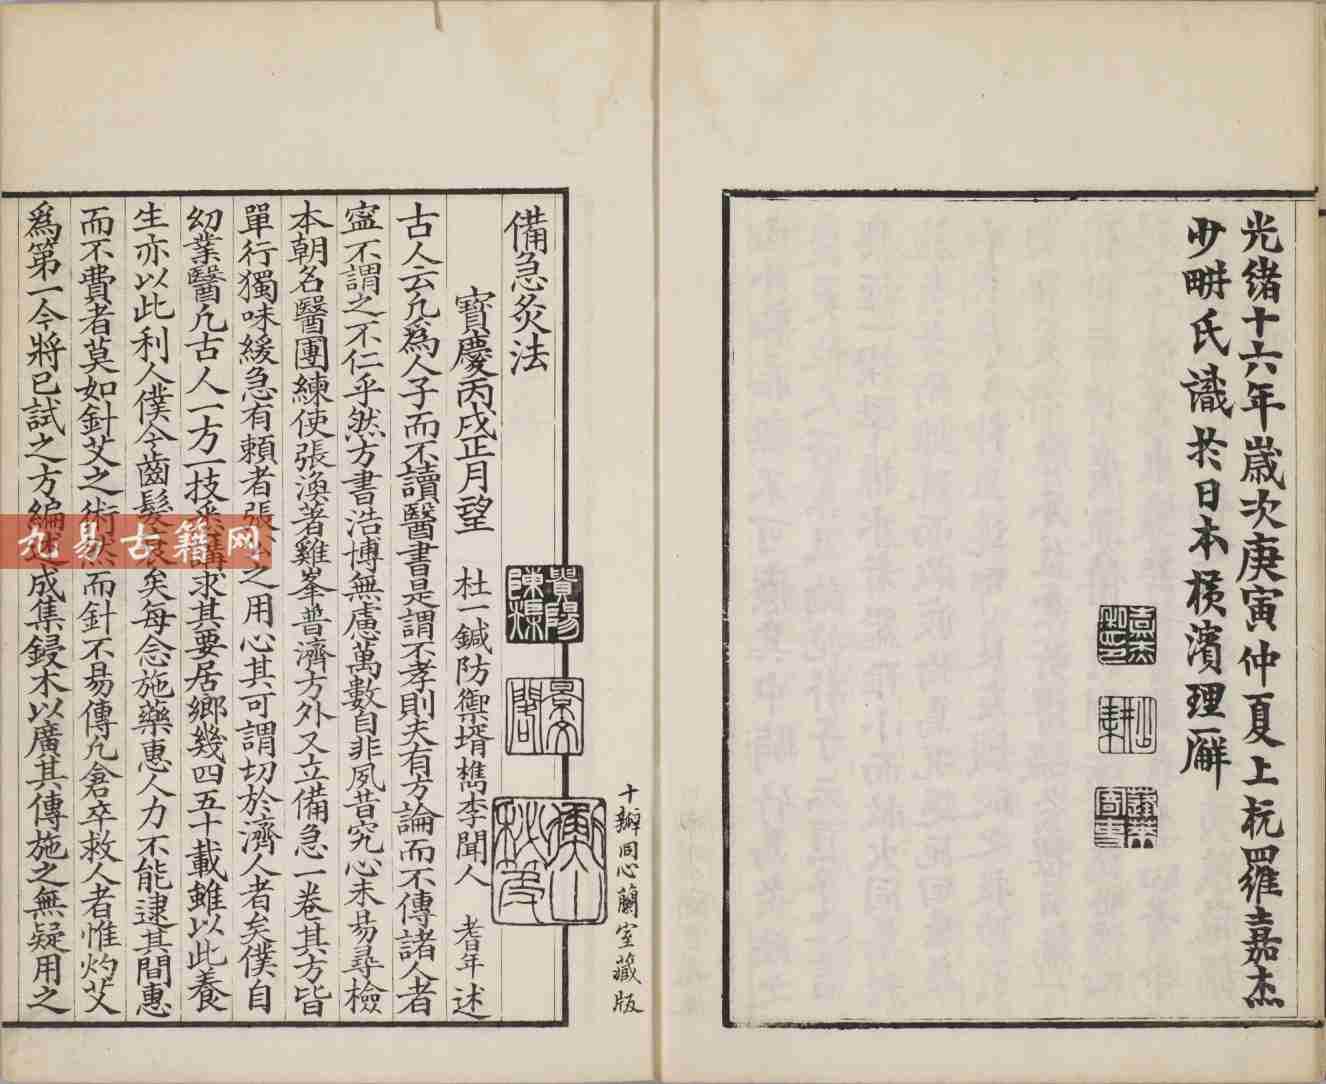 光緒十六年歲次庚寅仲夏上杬羅嘉杰
少畊氏識於日本橫濱理廨
十瓣同心蘭室藏版
備急灸法
寶慶丙戌正月望 杜一鍼防禦壻檇李聞人 耆年述
古人云凢爲人子而不讀醫書是謂不孝則夫有方論而不傳諸人者
寍不謂之不仁乎然方書浩博無慮萬數自非夙昔究心未昜尋檢
本朝名醫團練使張渙著雞峯普濟方外又立備急一卷其方皆
單行獨味緩急有賴者張公之用心其可謂切於濟人者矣僕自
幼業醫凢古人一方一技悉講求其要居鄉幾四五十載雖以此養
生亦以此利人僕今齒髮衰矣每念施藥惠人力不能逮其間惠
而不費者莫如針艾之術然而針不昜傳凢倉卒救人者惟灼艾
爲第一今將已試之方編述成集鋟木以廣其傳施之無疑用之
貴陽
陳榘
景文
閣
九易古籍网